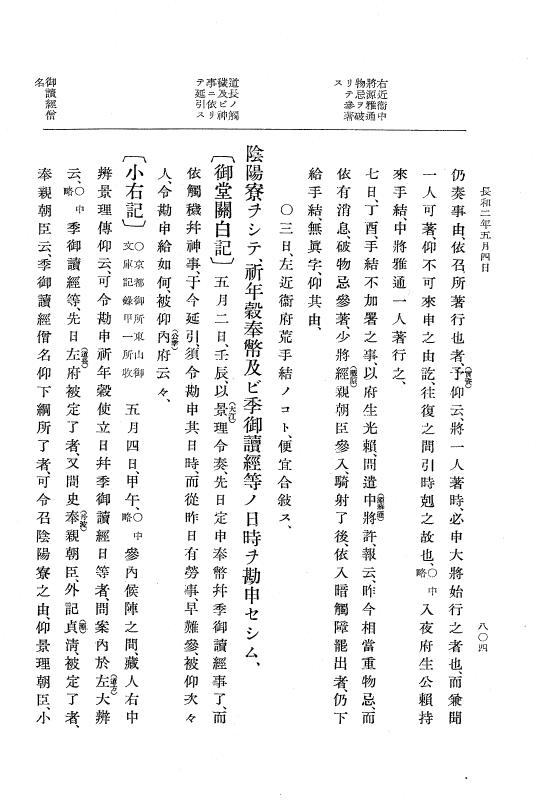 長和二年五月四日
八〇四
右近衞中
將源雅通
物忌ヲ破
リテ參著
ス
道長ノ觸
穢及ビ神
事ニ依リ
テ延引ス
御讀經僧
名
仍奏事由、依召所著行也者、予(實資)仰云、將一人著時、必申大將始行之者也、而兼聞
一人可著、仰不可來申之由訖、往復之間引時剋之故也、○中略入夜府生公賴持
來手結、中將雅通一人著行之、
七日、丁酉、手結不加署之事、以府生光賴、問遣中將(源雅通)許、報云、昨今相當重物忌、而
依有消息、破物忌參著、少將經親(藤原)朝臣參入、騎射了後、依入暗觸障罷出者、仍下
給手結、無眞字、仰其由、
○三日、左近衞府荒手結ノコト、便宜合敍ス、
陰陽寮ヲシテ、祈年穀奉幣及ビ季御讀經等ノ日時ヲ勘申セシム、
〔御堂關白記〕 五月二日、壬辰、以景理(大江)令奏、先日定申奉幣幷季御讀經事了、而
依觸穢幷神事、于今延引、須令勘申其日時、而從昨日有勞事、早難參、被仰次々
人、令勘申給如何、被仰內府(公季)云々、
〔小右記〕 ○京都御所東山御文庫記錄甲一所收 五月四日、甲午、○中略參內、候陣之間、藏人右中
辨景理傳仰云、可令勘申祈年穀使立日幷季御讀經日等者、問案內於左大辨(道方)
云、○中略季御讀經等、先日左府(道長)被定了者、又問史奉親(小槻)朝臣、外記貞淸、被定了者、
奉親朝臣云、季御讀經僧名仰下綱所了者、可令召陰陽寮之由、仰景理朝臣、小